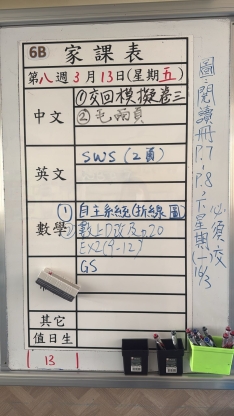 6B 家課表
第八週3月13日(星期五)
中文
①交回模擬卷三
②毛兩頁
英文
SWS (2頁)
數學
① 自主系統(折線圖)
數上D改及p.20
EX2(9-12)
GS
其它
值日生
13
圖:閱讀冊P.7,P.8,下星期(一)16/3
必須交